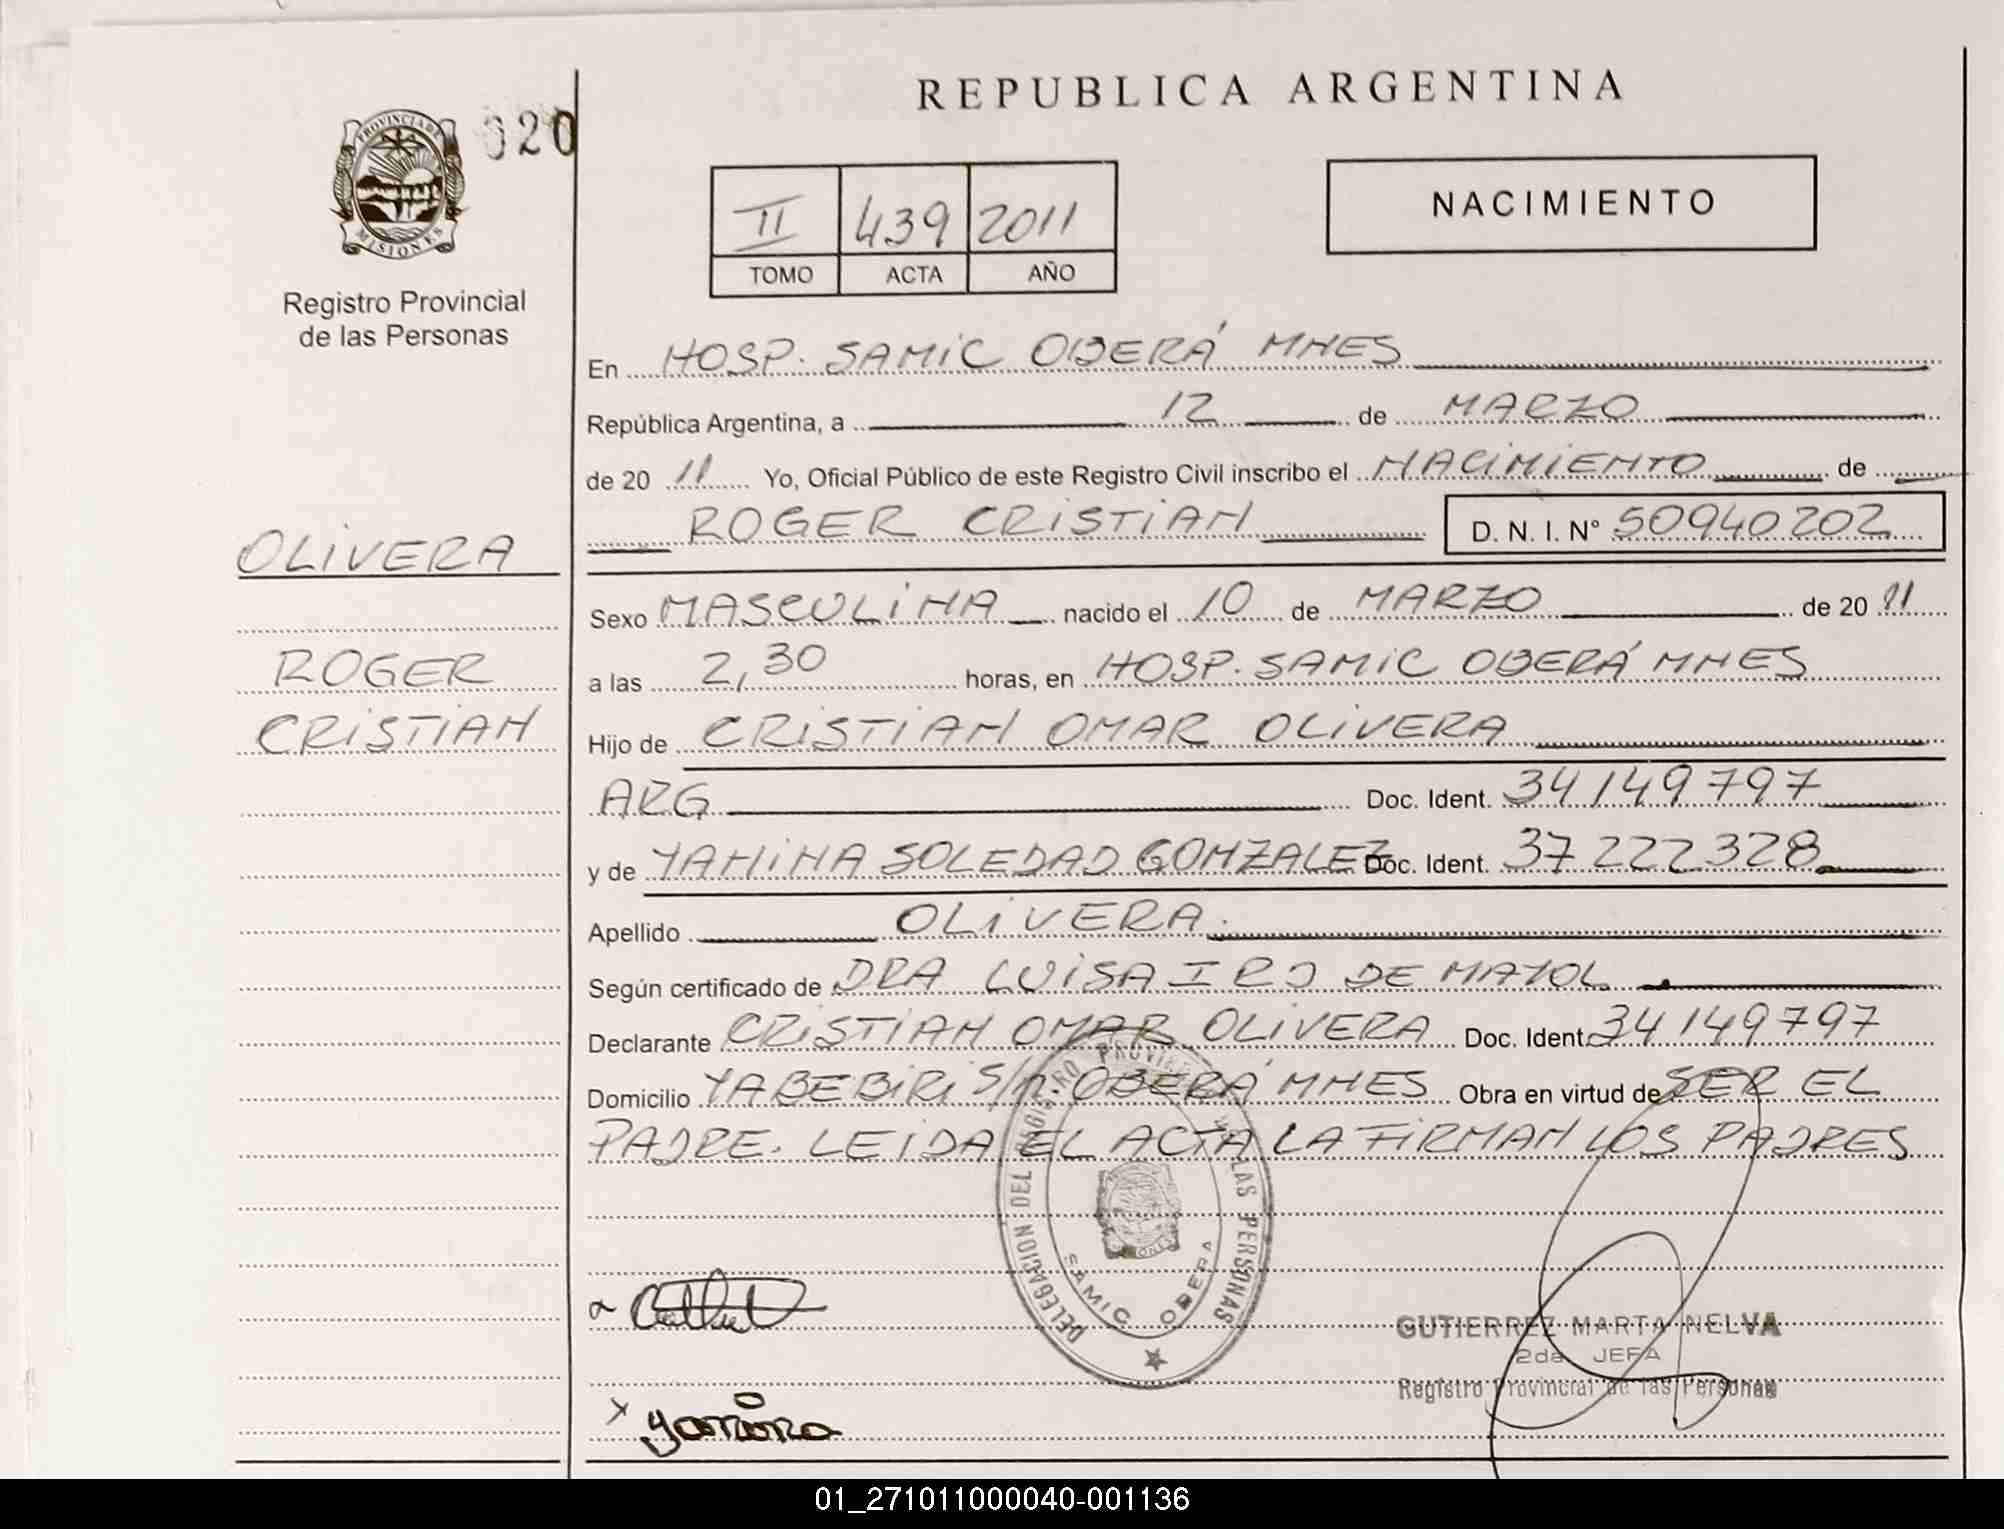 REPUBLICA ARGENTINA
020
PROVINCIA DE MISIONES
Registro Provincial
de las Personas
II 439 2011
TOMO ACTA AÑO
NACIMIENTO
En HOSP. SAMIC OBERÁ MNES
República Argentina, a 12 de MARZO
de 20 11 Yo, Oficial Público de este Registro Civil inscribo el NACIMIENTO de
ROGER CRISTIAN D. N. I. N° 50940202
OLIVERA
ROGER
CRISTIAN
Sexo MASCULINA nacido el 10 de MARZO de 20 11
a las 2,30 horas, en HOSP. SAMIC OBERÁ MNES
Hijo de CRISTIAN OMAR OLIVERA
ARG Doc. Ident. 34149797
y de YAMINA SOLEDAD GONZALEZ Doc. Ident. 37222328
Apellido OLIVERA
Según certificado de DRA LUISA DE MAYOL
Declarante CRISTIAN OMAR OLIVERA Doc. Ident. 34149797
Domicilio YABEBIRI S/N. OBERÁ MNES Obra en virtud de SER EL
PADRE. LEIDA EL ACTA LA FIRMAN LOS PADRES
DELEGACION DEL REGISTRO PROVINCIAL DE LAS PERSONAS
SAMIC OBERA
GUTIERREZ MARTA NELVA
2da JEFA
Registro Provincial de las Personas
Yamina
01_271011000040-001136